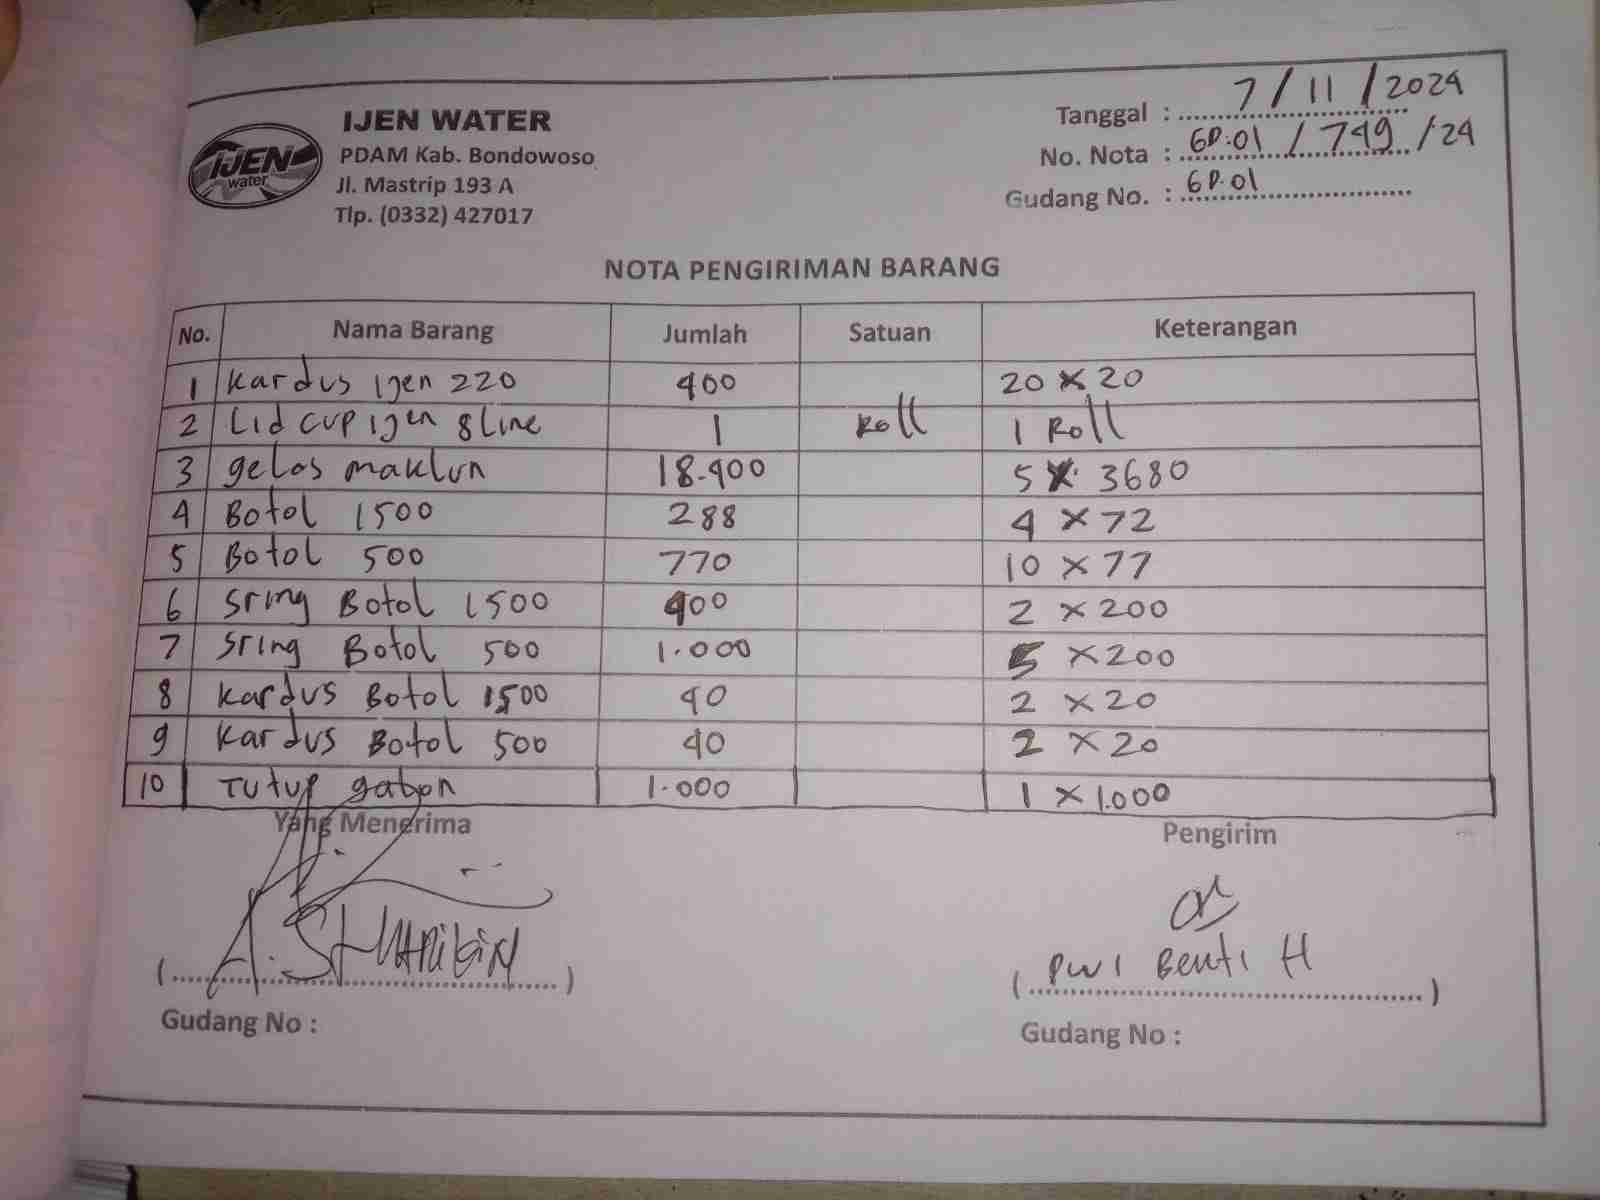 IJEN WATER
PDAM Kab. Bondowoso
Jl. Mastrip 193 A
Tlp. (0332) 427017
IJEN
water
Tanggal : 7/11/2024
No. Nota : GD.01 / 749 /24
Gudang No. : GD.01
NOTA PENGIRIMAN BARANG
No. Nama Barang Jumlah Satuan Keterangan
1 Kardus Ijen 220 400 20 x 20
2 Lid cup ijen 8 Line 1 Roll 1 Roll
3 gelas maklun 18.400 5 x 3680
4 Botol 1500 288 4 x 72
5 Botol 500 770 10 x 77
6 Sring Botol 1500 400 2 x 200
7 Sring Botol 500 1.000 5 x 200
8 Kardus Botol 1500 40 2 x 20
9 Kardus Botol 500 40 2 x 20
10 Tutup galon 1.000 1 x 1.000
Yang Menerima Pengirim
( ) ( Dwi Benti H )
Gudang No : Gudang No :